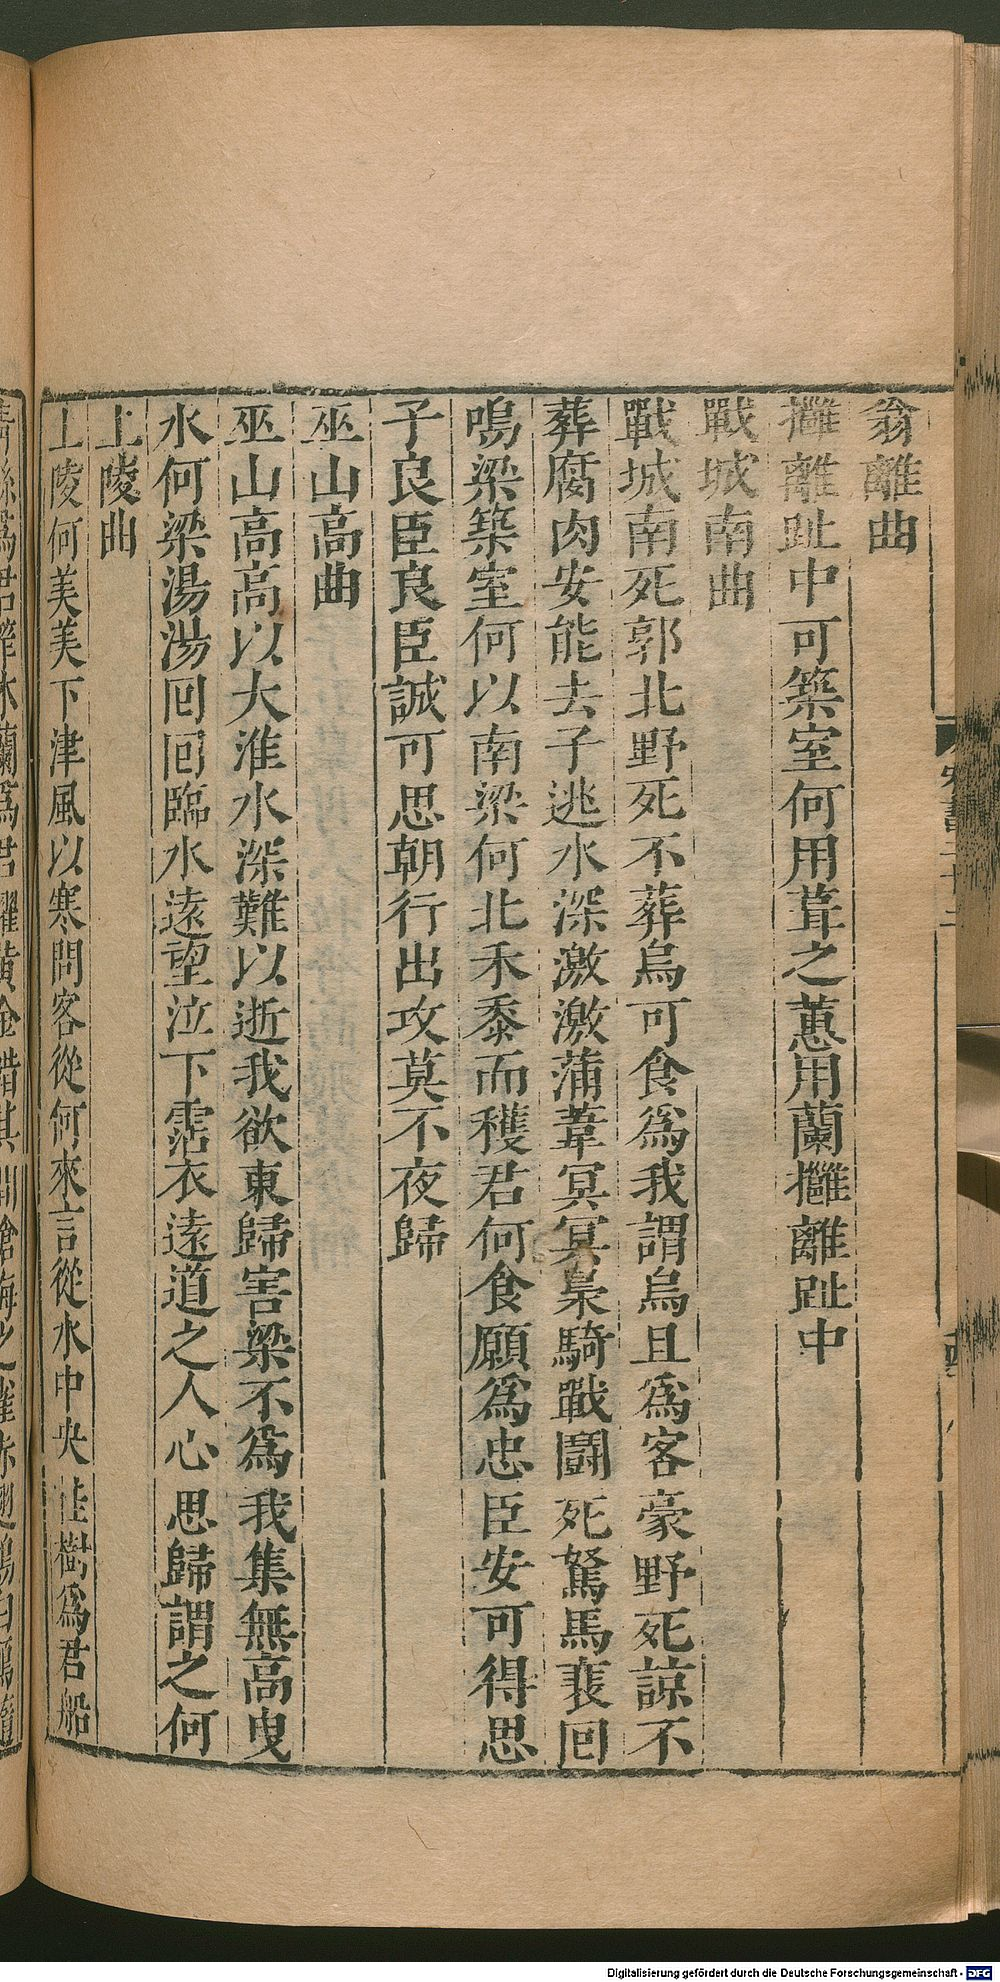 翁離曲
擁離趾中可築室何用葺之蕙用蘭擁離趾中
戰城南曲
戰城南死郭北野死不葬烏可食爲我謂烏且爲客豪野死諒不
葬腐肉安能去子逃水深激激蒲葦冥冥梟騎戰鬬死駑馬裵回
鳴梁築室何以南梁何北禾黍而穫君何食願爲忠臣安可得思
子良臣良臣誠可思朝行出攻莫不夜歸
巫山高曲
巫山高高以大淮水深難以逝我欲東歸害梁不爲我集無高曳
水何梁湯湯回回臨水遠望泣下霑衣遠道之人心思歸謂之何
上陵曲
上陵何美美下津風以寒問客從何來言從水中央桂樹爲君船
青絲爲君笮木蘭爲君櫂黃金錯其間滄海之雀赤翅鴻白鴈隨
Digitalisierung gefördert durch die Deutsche Forschungsgemeinschaft - DFG